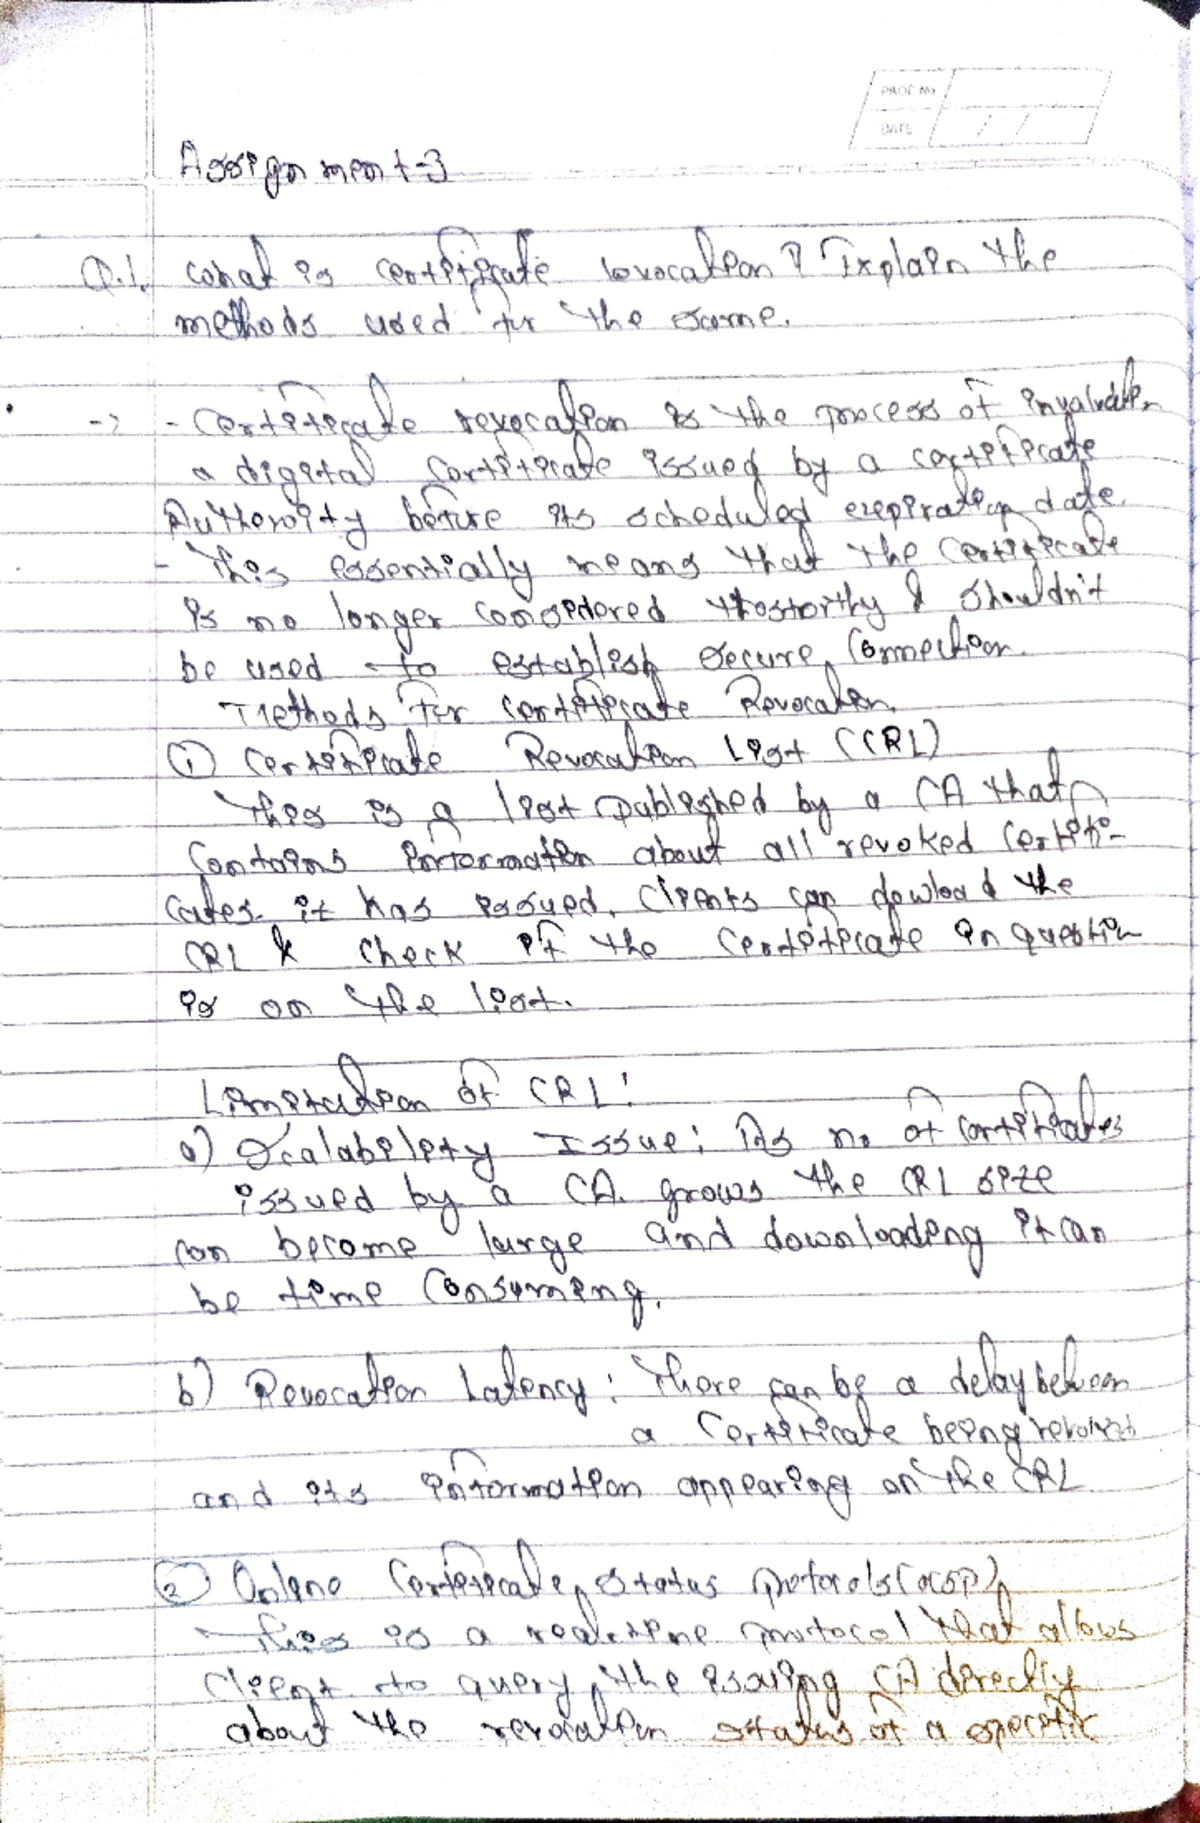 PAGE No
DATE / /
Assignment-3
Q.1. What is certificate revocation? Explain the
methods used for the same.
-> - Certificate revocation is the process of
a digital Certificate issued by a certificate
Authority before its scheduled expiration date.
- This essentially means that the certificate
is no longer considered & shouldn't
be used to establish secure connection.
Methods for certificate Revocation.
① Certificate Revocation List (CRL)
This is a list published by a CA that
contains information about all revoked certifi-
cates it has issued. Clients can dowload the
CRL & check if the certificate in question
is on the list.
Limitation of CRL:
a) Scalability Issue: As no of certificates
issued by a CA. grows the CRL size
can become large and downloading it can
be time consuming.
b) Revocation Latency: There can be a delay between
a certificate being revoked
and its information appearing on the CRL
② Online Certificate status (OCSP)
This is a real-time protocol that allows
client to query the issuing CA directly
about the revocation status of a specific